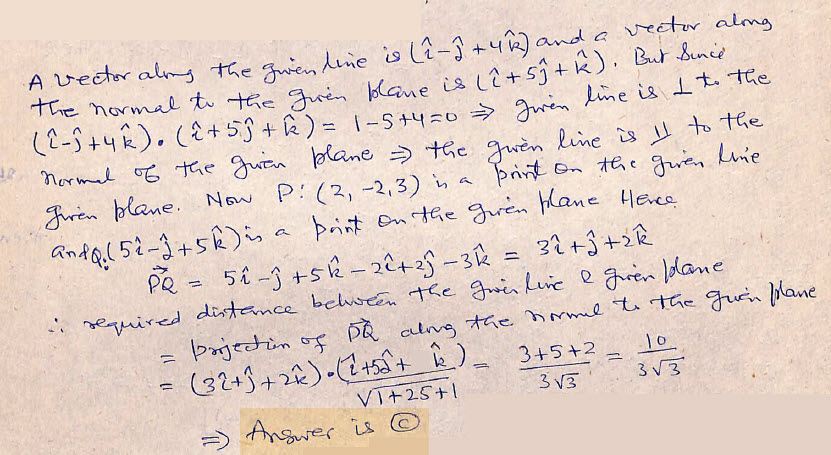 A vector along the given line is (î-ĵ+4k̂) and a vector along
the normal to the given plane is (î+5ĵ+k̂). But Since
(î-ĵ+4k̂).(î+5ĵ+k̂) = 1-5+4=0 ⇒ given line is ⊥ to the
normal of the given plane ⇒ the given line is || to the
given plane. Now P:(2,-2,3) is a point on the given line
and Q:(5î-ĵ+5k̂) is a point on the given plane Hence
PQ⃗ = 5î-ĵ+5k̂-2î+2ĵ-3k̂ = 3î+ĵ+2k̂
∴ required distance between the given line & given plane
= projection of PQ⃗ along the normal to the given plane
= (3î+ĵ+2k̂).(î+5ĵ+k̂)/√1+25+1 = 3+5+2/3√3 = 10/3√3
⇒ Answer is ©